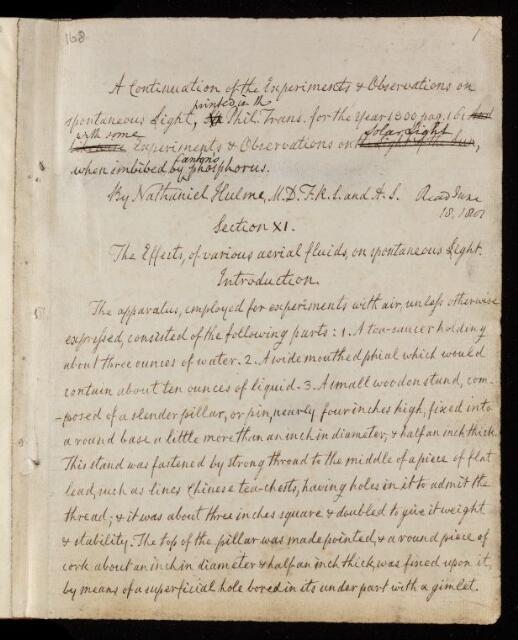 168
1
A Continuation of the Experiments & Observations on
printed in the
spontaneous Light, Phil. Trans. for the Year 1800 pag. 161
with some Solar Light
Experiments & Observations on the Light of the Sun,
Canton's
when imbibed by phosphorus.
By Nathaniel Hulme, M.D. F.R.S. and A.S. Read June
18, 1801
Section XI.
The Effects, of various aerial fluids, on spontaneous Light.
Introduction.
The apparatus, employed for experiments with air, unless otherwise
expressed, consisted of the following parts: 1. A tea-saucer holding
about three ounces of water. 2. A wide mouthed phial which would
contain about ten ounces of liquid. 3. A small wooden stand, com-
-posed of a slender pillar, or pin, nearly four inches high, fixed into
a round base a little more than an inch in diameter, & half an inch thick.
This stand was fastened by strong thread to the middle of a piece of flat
lead, such as lines Chinese tea-chests, having holes in it to admit the
thread; & it was about three inches square & doubled to give it weight
& stability. The top of the pillar was made pointed, & a round piece of
cork about an inch in diameter & half an inch thick, was fixed upon it,
by means of a superficial hole bored in its under part with a gimlet.